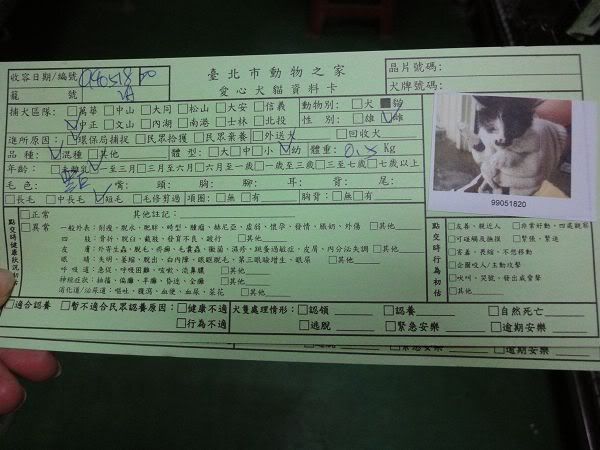 臺北市動物之家
愛心犬貓資料卡
收容日期/編號
籠 號
晶片號碼:
犬牌號碼:
捕犬區隊: □萬華 □中山 □大同 □松山 □大安 □信義 動物別: □犬 ■貓
□中正 □文山 □內湖 □南港 □士林 □北投 性 別: □雄 □雌
進所原因: □環保局捕捉 □民眾拾獲 □民眾棄養 □外送犬 □回收犬
品 種: □混種 □其他 體 型: □大 □中 □小 □幼 體重: 0.5 Kg
年齡: □未離乳 □一至三月 □三月至六月 □六月至一歲 □一歲至三歲 □三至七歲 □七歲以上
毛 色: 嘴: 頭: 胸: 腳: 耳: 背: 尾:
□長毛 □中長毛 □短毛 □毛修剪過 項圈: □無 □有 胸背: □無 □有
99051820
點交時健康狀況初評
□正常 其他註記:
□異常 一般外表: 削瘦、脫水、肥胖、畸型、腫瘤、赫尼亞、虛弱、懷孕、發情、脹奶、外傷 □其他
四 肢: 骨折、脫臼、截肢、發育不良、跛行 □其他
皮 膚: 外寄生蟲、脫毛、疥癬、毛囊蟲、黴菌、濕疹、跳蚤過敏症、皮屑、內分泌失調 □其他
眼 睛: 失明、萎縮、脫出、白內障、眼瞼脫毛、第三眼瞼增生、眼屎 □其他
呼 吸 道: 急促、呼吸困難、咳嗽、流鼻膿 □其他
神經症狀: 抽搐、偏癱、半癱、昏迷、全癱 □其他
消化道/泌尿道: 嘔吐、腹瀉、血便、血尿、菜花 □其他
點交時行為初估
□友善、親近人 □非常好動、四處觀察
□可碰觸及撫摸 □緊張、緊迫
□害羞、畏縮、不想移動
□企圖咬人/主動攻擊
□吠叫、哭號、發出威脅聲
□其他
□適合認養 □暫不適合民眾認養原因: □健康不適 犬隻處理情形: □認領 □認養 □自然死亡
□行為不適 □逃脫 □緊急安樂 □逾期安樂
□逃脫 □緊急安樂 □逾期安樂